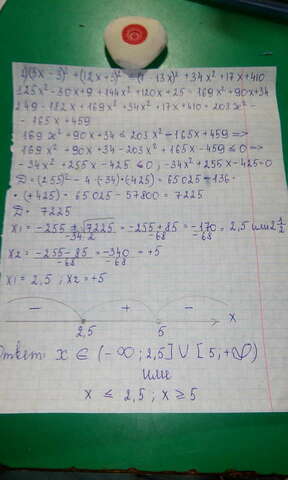 (5x - 3)² + (12x + 5)² (7 - 13x)² + 34x² + 17x + 410
125x² - 30x + 9 + 144x² + 120x + 25 = 169x² + 90x + 34
249 - 182x + 169x² + 34x² + 17x + 410 = 203x² -
- 165x + 459
169x² + 90x + 34 ≤ 203x² - 165x + 459 =>
169x² + 90x + 34 - 203x² + 165x - 459 ≤ 0 =>
- 34x² + 255x - 425 ≤ 0, - 34x² + 255x - 425 = 0
D = (255)² - 4 · (-34) · (-425) = 65025 - 136 ·
· (+425) = 65025 - 57800 = 7225
D = 7225
x1 = -255 + √7225 / -34·2 = -255 + 85 / -68 = -170 / -68 = 2,5 или 2 1/2
x2 = -255 - 85 / -68 = -340 / -68 = +5
x1 = 2,5 ; x2 = +5
- + -
2,5 5 x
Ответ x ∈ (-∞ ; 2,5] ∪ [5 ; +∞)
или
x ≤ 2,5 ; x ≥ 5